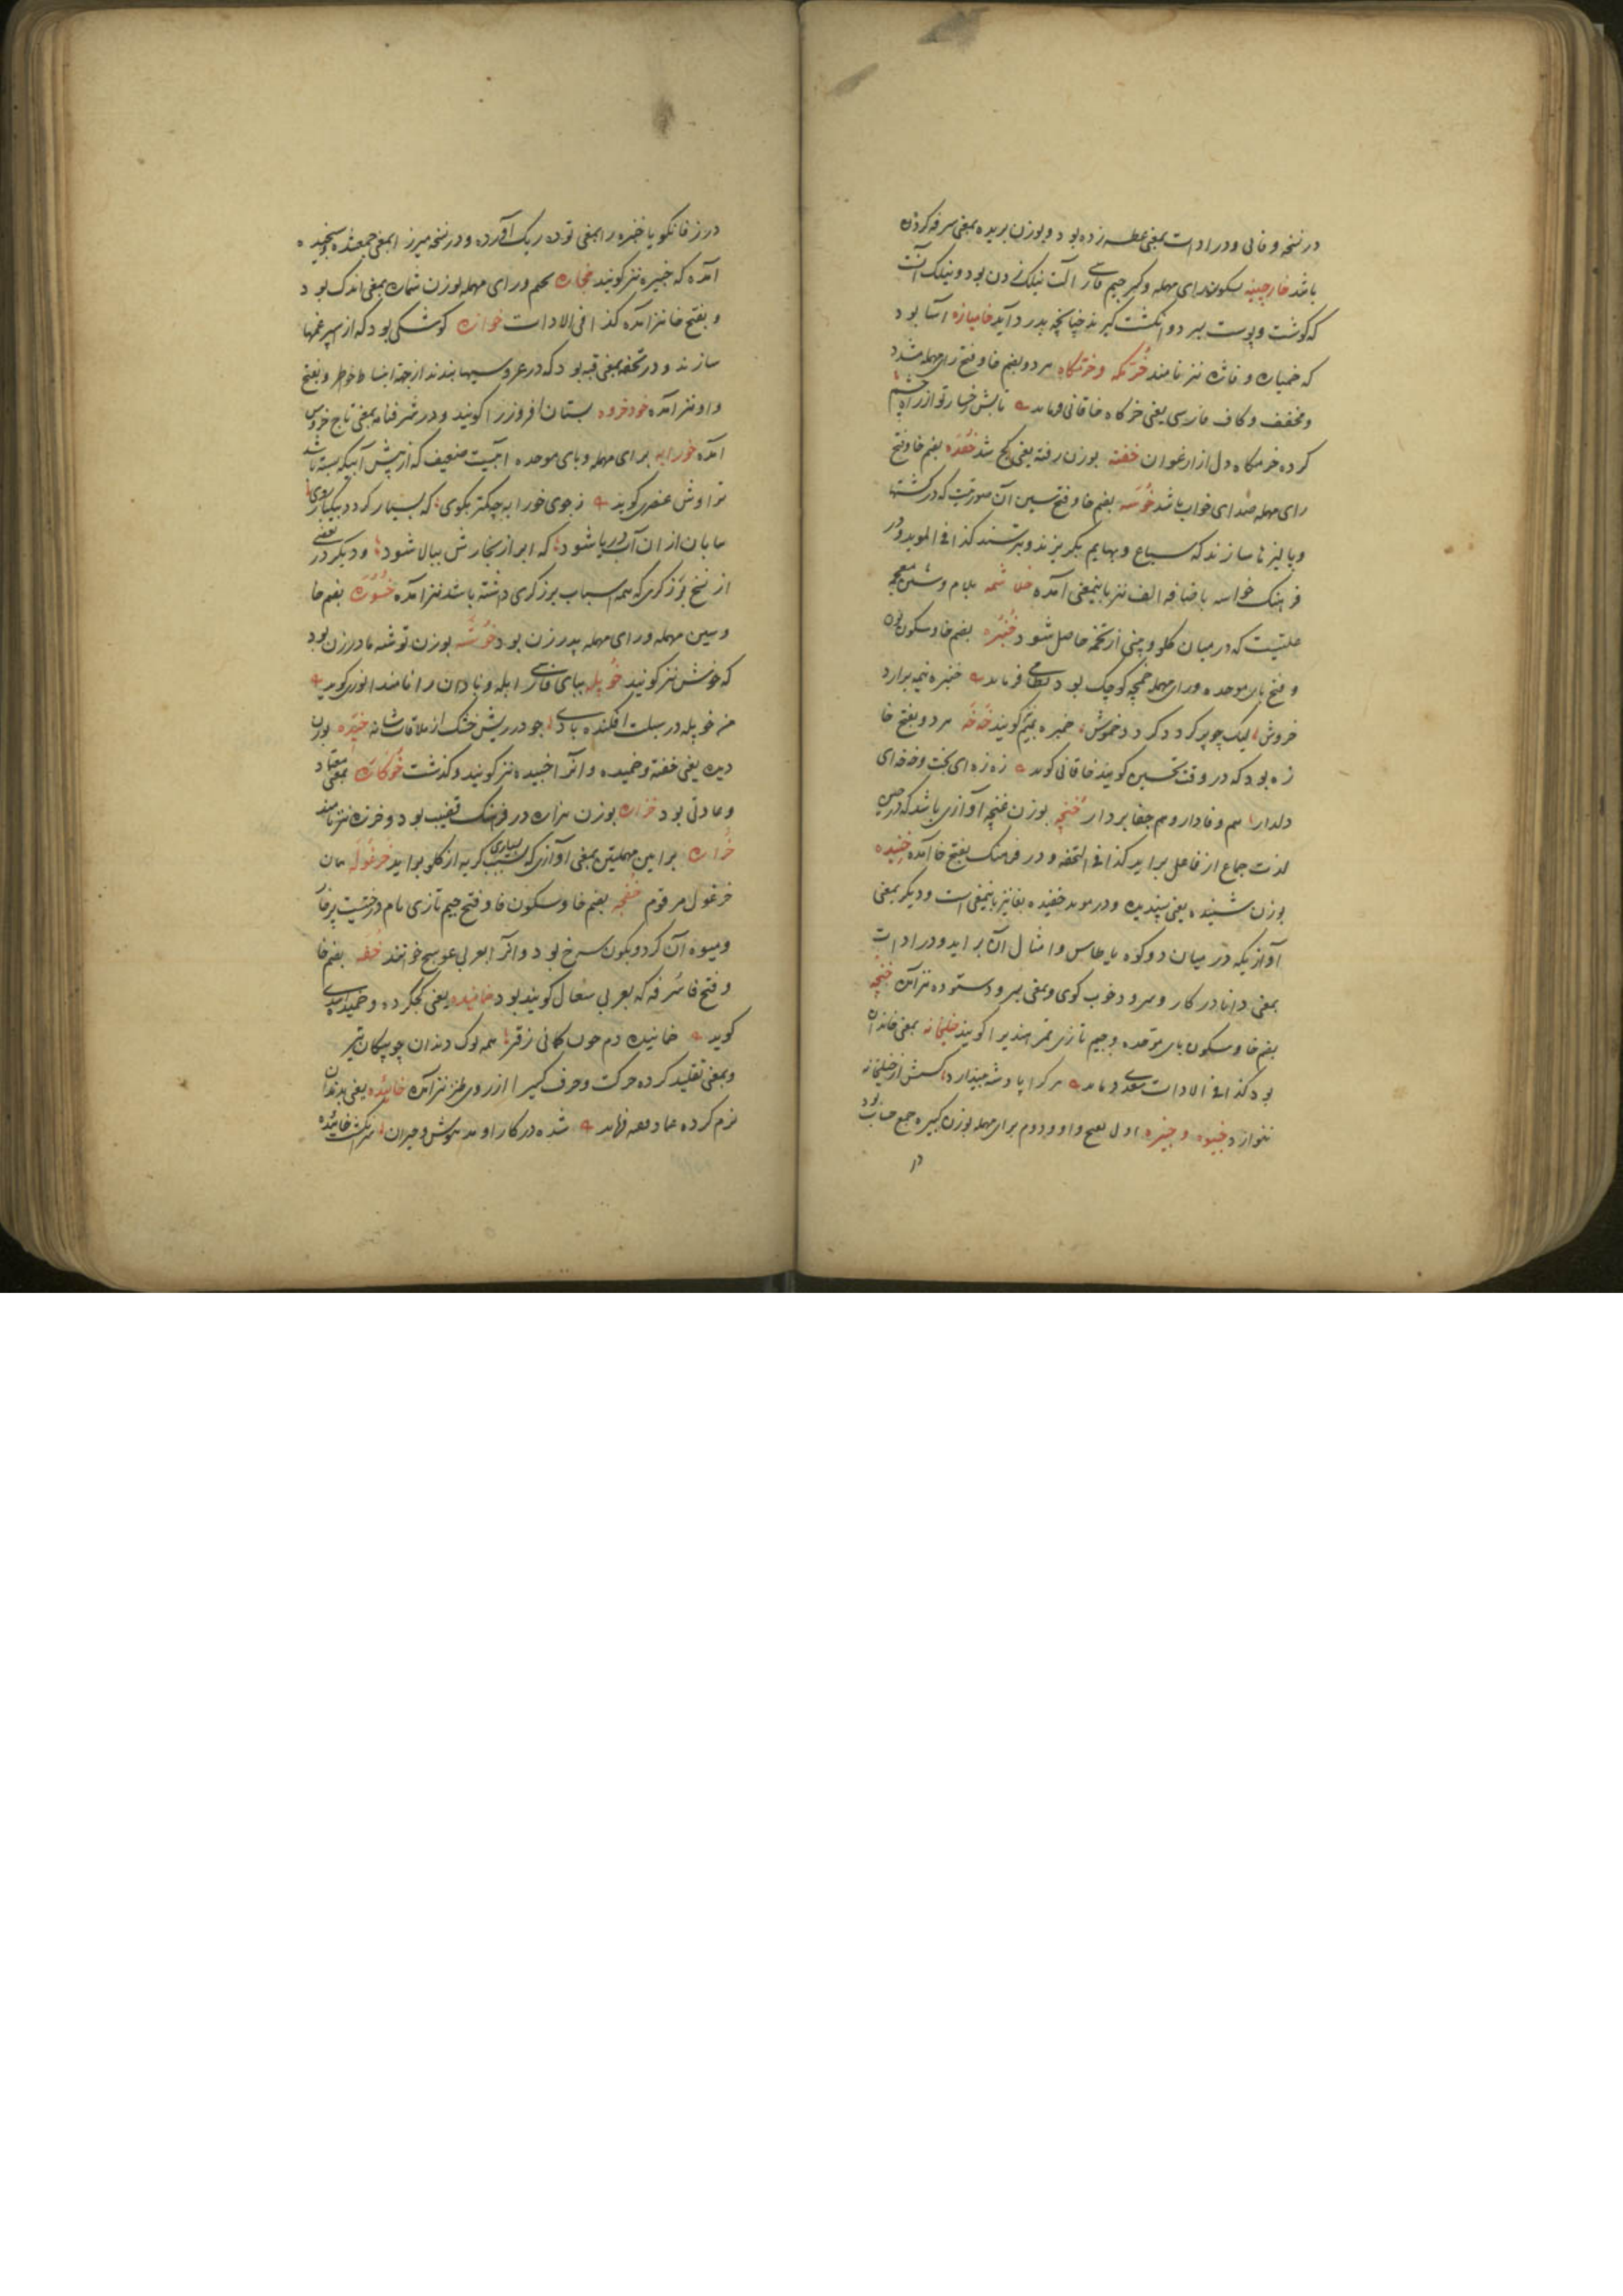 در نسخه وفائی و در ادات بمعنی عطسه زده بود و بوزن بریده بمعنی سرفه کردن
باشد خارچینه بسکون رای مهمله و کسر جیم فارسی آلت نیلک زدن بود و نیلک آنست
که گوشت و پوست بسر دو انگشت گیرند چنانچه بدرد آید خامیازه آسا بود
که خمیازه و فاژه نیز نامند خرگه و خرگاه هر دو بضم خا و فتح رای مهمله مشدد
و مخفف و کاف فارسی یعنی خرگاه خاقانی فرماید تابش رخسار تو از راه چشم
کرده خرگاه دل از ارغوان خفته بوزن رفته یعنی کج شد بضم خا و فتح
رای مهمله صدای خواب باشد خوسه بضم خا و فتح سین آن صورتیست که در کشتها
و پالیزها سازند که سباع و بهایم بگریزند و بترسند کذا فی الموید و در
فرهنگ خواسه باضافه الف نیز باینمعنی آمده خلاشمه بلام و شین معجمه
علتیست که در میان گلو و بینی از تخمه حاصل شود خنبره بضم خا و سکون نون
و فتح بای موحده و رای مهمله خمچه کوچک بود نظامی فرماید خنبره نیمه برآرد
خروش لیک چو پر گردد گردد خموش خمبره بمیم گویند خه خه هر دو بفتح خا
زه بود که در وقت تحسین گویند خاقانی گوید زه زه ای بخت و خه خه ای
دلدار هم وفادار و هم جفا بردار خفچه بوزن غنچه آوازی باشد که در حین
لذت جماع از فاعل برآید کذا فی التحفه و در فرهنگ بفتح خا آمده خنیده
بوزن شنیده یعنی پسندیده و در موید خفیده بفا نیز باینمعنی است و دیگر بمعنی
آوازیکه در میان دو کوه یا طاس و امثال آن برآید و در ادات
بمعنی دانا در کار و سرود خوب گوی و بمعنی سرود ستوده نیز آمده خبجه
بضم خا و سکون بای موحده و جیم تازی تمر هندی را گویند خلیخانه بمعنی خاندان
بود کذا فی الادات سعدی فرماید هر که را پادشه بیندازد کسش از خلیخانه
ننوازد خبیوه و خبیره اول بفتح واو و دوم برای مهمله بوزن کبیره جمع حساب بود
در
در زفانگویا خنبره را بمعنی توده ریگ آورده و در نسخه میرزا بمعنی جمع شده و بسیجیده
آمده که خبیره نیز گویند خجاره بجیم و رای مهمله بوزن شماره بمعنی اندک بود
و بفتح خا نیز آمده کذا فی الادات خوازه کوشکی بود که از سپرغمها
سازند و در تحفه بمعنی قبه بود که در عروسیها بندند از جهة انبساط خاطر و بفتح
واو نیز آمده خودخروه بستان افروز را گویند و در شرفنامه بمعنی تاج خروس
آمده خورابه برای مهمله و بای موحده آبیست ضعیف که از پیش آبیکه بسته باشد
تراوش عنصری گوید ز جوی خورابه چه کمتر بگوی که بسیار گردد بیکبار روی
بیابان از آن آب دریا شود که ابر از بخارش ببالا شود و دیگر در بعضی
از نسخ برزگری که همه اسباب برزگری داشته باشد نیز آمده خسوره بضم خا
و سین مهمله و رای مهمله پدر زن بود خوشه بوزن توشه مادر زن بود
که خوش نیز گویند خوپله ببای فارسی ابله و نادان را نامند انوری گوید
من خوپله در سبلت افکنده بادی چو در ریش خشک از ملاقات شانه خمیده بوزن
دیده یعنی خفته و خمیده و آنرا خبیده نیز گویند و گذشت خوکاره بمعنی معتاد
و عادتی بود خزاره بوزن هزاره در فرهنگ قضیب بود و خرزه نیز نامند
خراره براین مهملتین بمعنی آوازی که بسبب بسیاری گریه از گلو برآید خرغوله همان
خرغول مرقوم خفجه بضم خا و سکون فا و فتح جیم تازی نام درختیست پرخار
و میوه آن گرد و بگون سرخ بود و آنرا بعربی عوسج خوانند خفه بضم خا
و فتح فا سرفه که بعربی سعال گویند بود خمانیده یعنی کج کرده و خمیده اسدی
گوید خمانیده دم چون کمانی ز قیر همه نوک دندان چو پیکان تیر
و بمعنی تقلید کرده حرکت و حرف کسی را از روی طنز نیز آمده خائیده یعنی بدندان
نرم کرده شده در کار او مدهوش و حیران سرانگشت خائیده